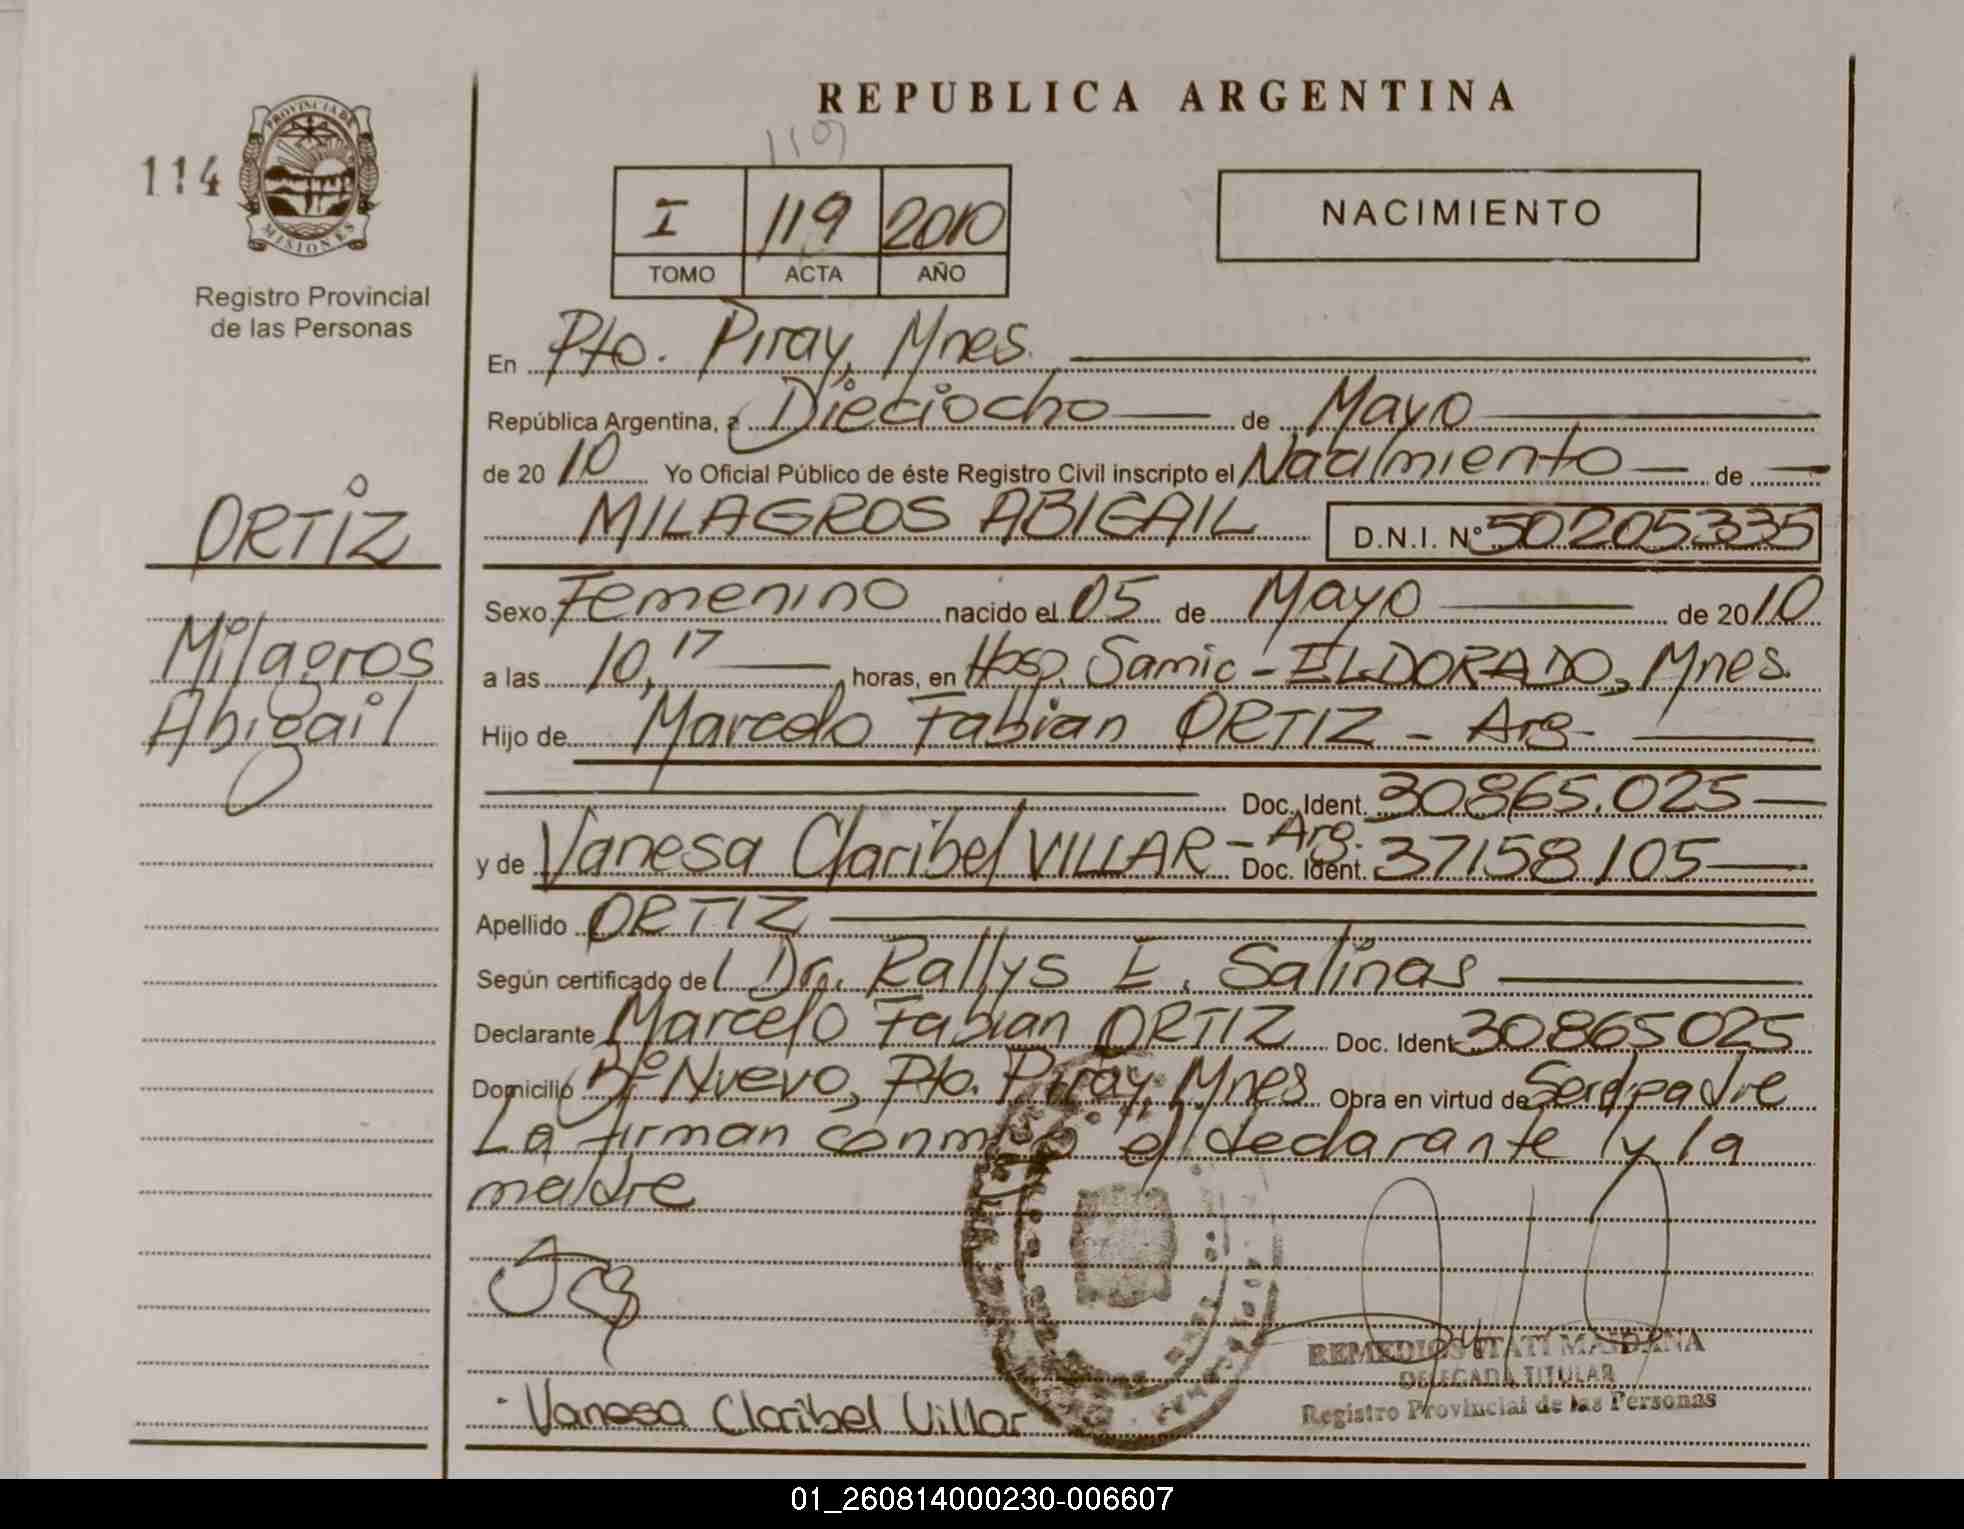 REPUBLICA ARGENTINA
119
114
PROVINCIA DE
MISIONES
Registro Provincial
de las Personas
I 119 2010
TOMO ACTA AÑO
NACIMIENTO
En Pto. Piray, Mnes.
República Argentina, a Dieciocho de Mayo
de 2010 Yo Oficial Público de éste Registro Civil inscripto el Nacimiento de
MILAGROS ABIGAIL D.N.I. Nº 50205335
ORTIZ
Milagros
Abigail
Sexo Femenino nacido el 05 de Mayo de 2010
a las 10,17 horas, en Hosp. Samic - ELDORADO, Mnes.
Hijo de Marcelo Fabian ORTIZ - Arg-
Doc. Ident. 30865.025
y de Vanesa Claribel VILLAR - Arg. Doc. Ident. 37158105
Apellido ORTIZ
Según certificado del Dr. Rallys E. Salinas
Declarante Marcelo Fabian ORTIZ Doc. Ident 30865025
Domicilio Bº Nuevo, Pto. Piray, Mnes Obra en virtud de Ser padre
La firman conmigo el declarante y la
madre
Vanesa Claribel Villar
REMEDIOS ITATI MAIDANA
DELEGADA TITULAR
Registro Provincial de las Personas
01_260814000230-006607